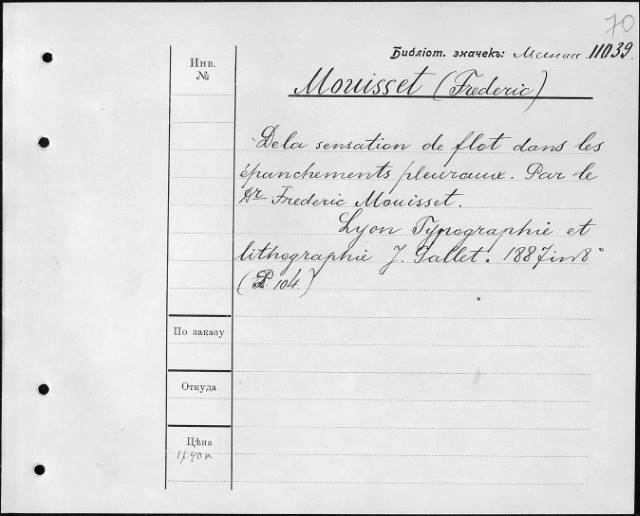 70
Библіот. значекъ: 11039.
Инв.
№
Mouisset (Frederic)
De la sensation de flot dans les
épanchements pleuraux. Par le
Dr Frederic Mouisset.
Lyon Typographie et
lithographie J. Gallet. 1887 in 8°
(P. 104.)
По заказу
Откуда
Цѣна
1 р. 40 к